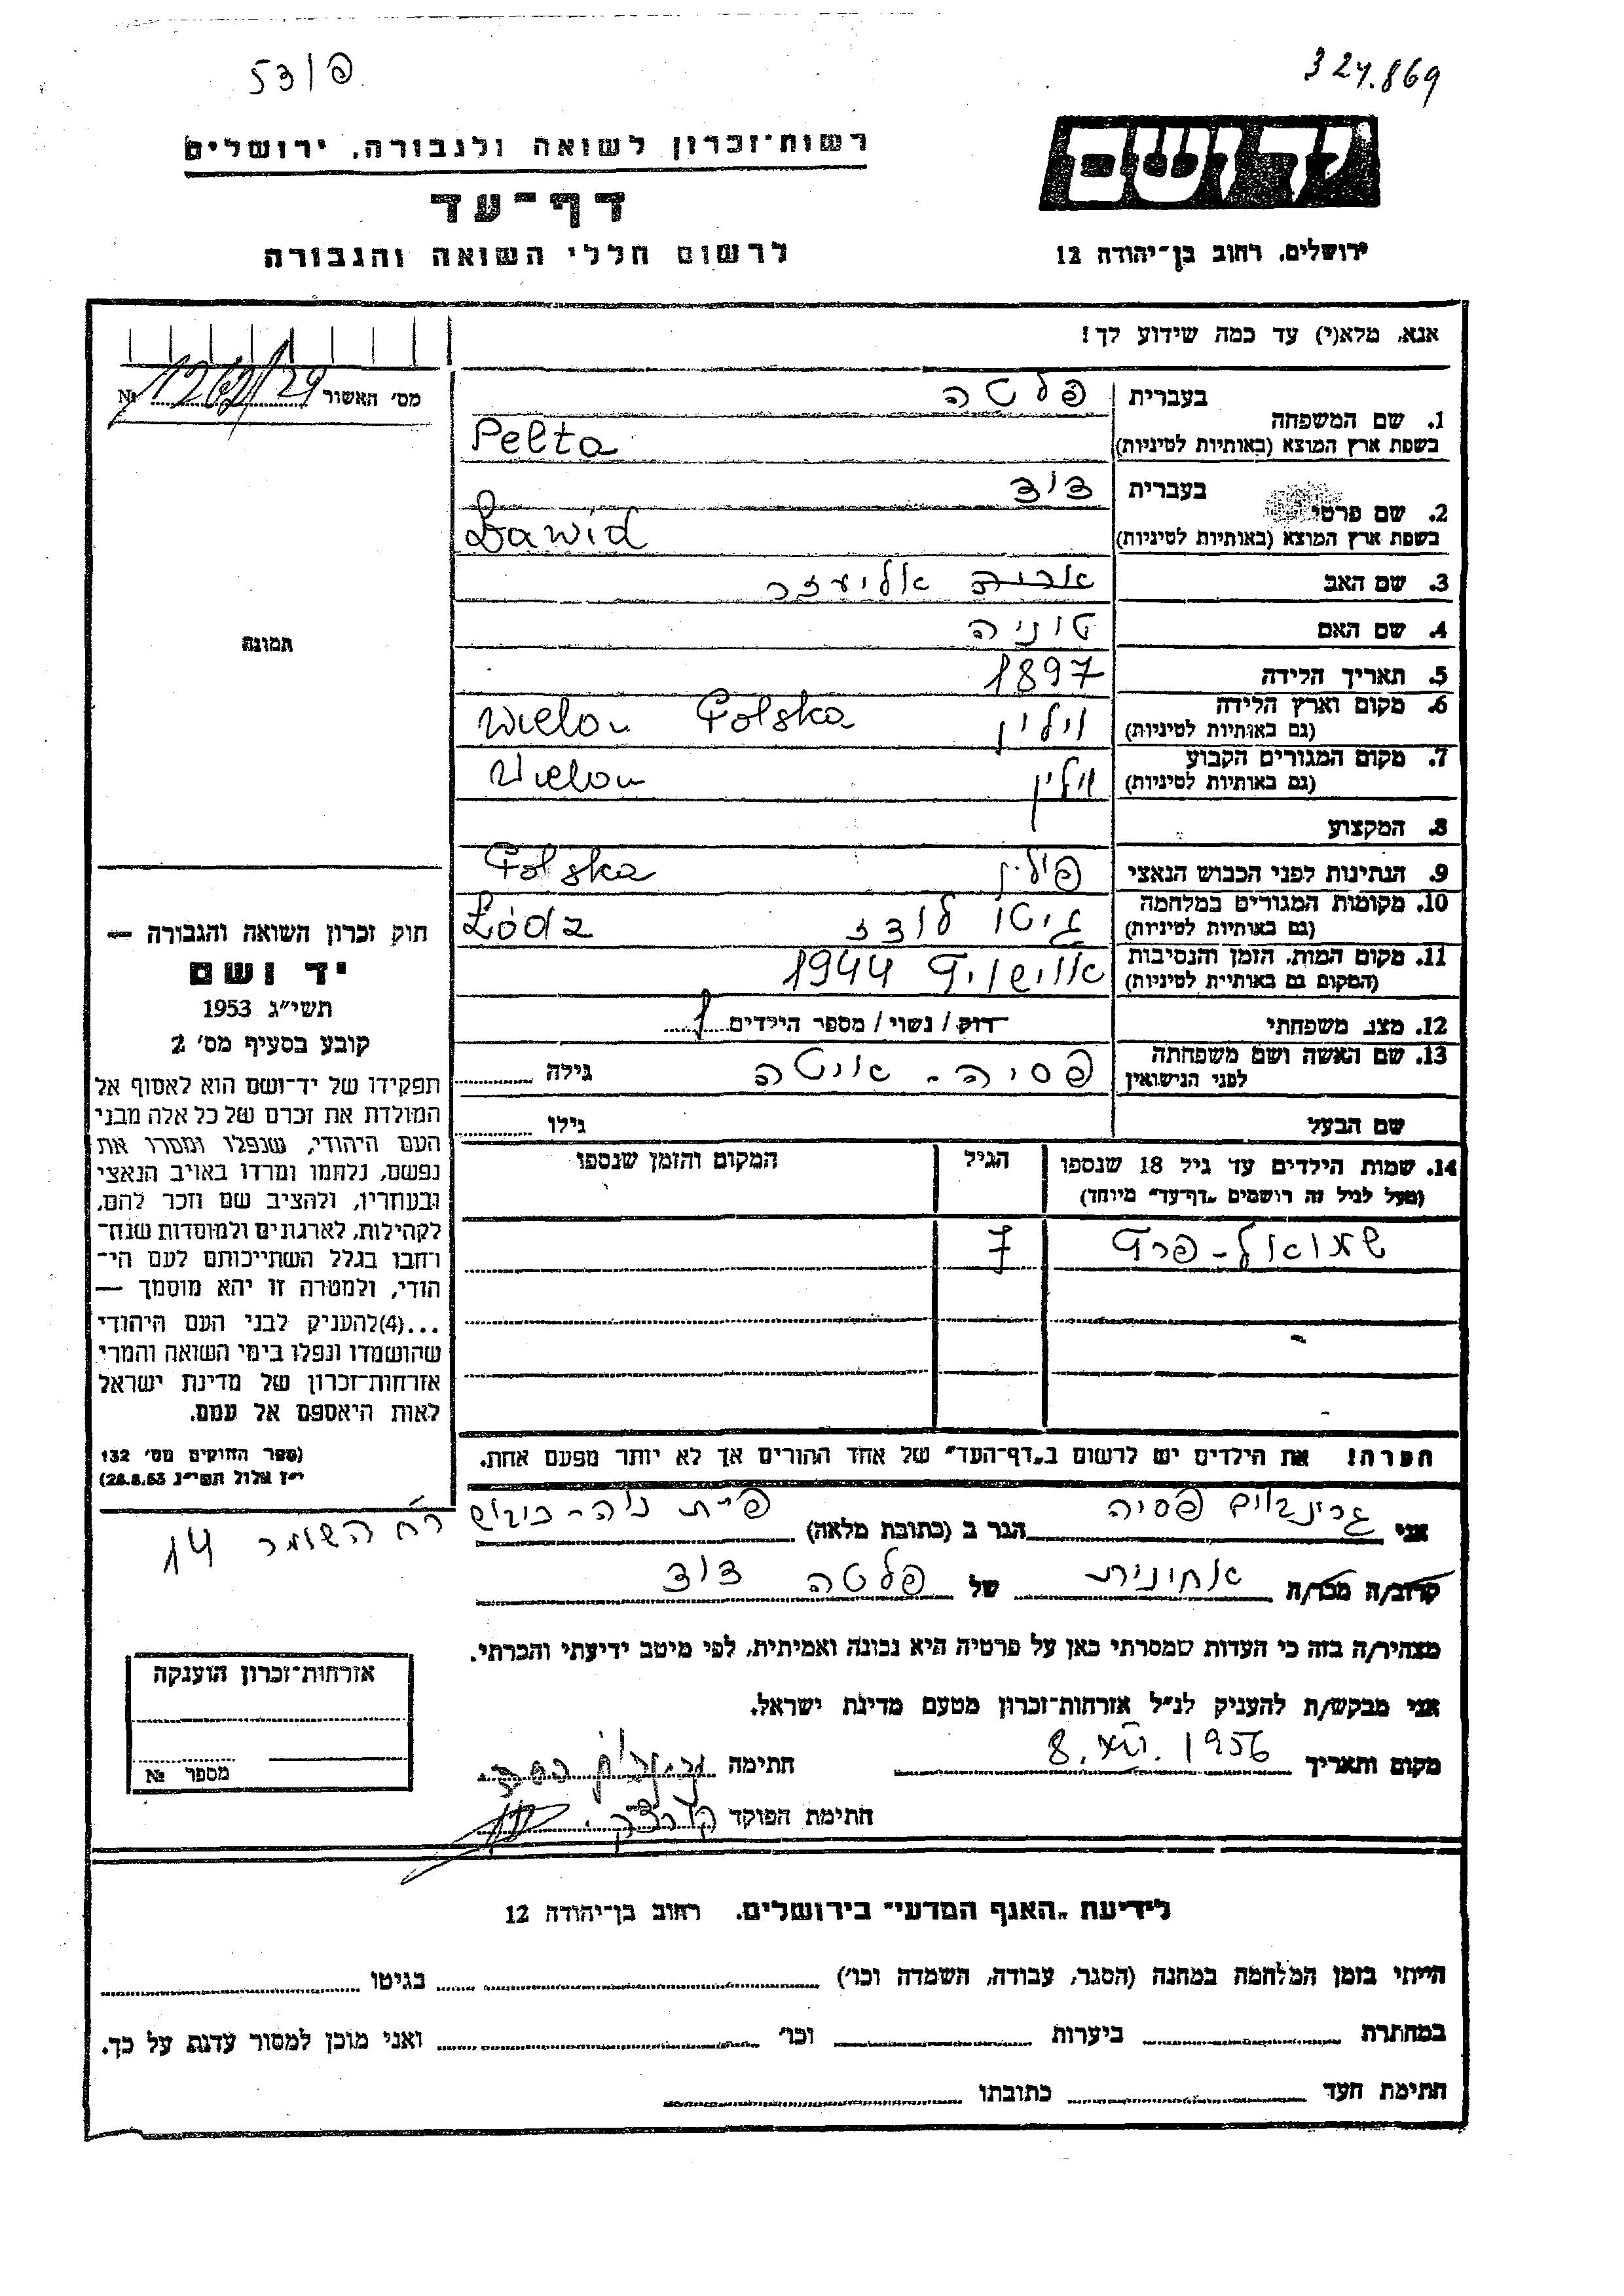 53/פ
324.869
רשות־זכרון לשואה ולגבורה, ירושלים
דף־עד
לרשום חללי השואה והגבורה
יד ושם
ירושלים, רחוב בן־יהודה 12
אנא, מלא(י) עד כמה שידוע לך!
מס׳ האשור №
1. שם המשפחה בעברית פלטה
בשפת ארץ המוצא (באותיות לטיניות) Pelta
2. שם פרטי בעברית דוד
בשפת ארץ המוצא (באותיות לטיניות) Dawid
3. שם האב אריה אליעזר
4. שם האם טוניה
5. תאריך הלידה 1897
6. מקום וארץ הלידה (גם באותיות לטיניות) וילין Polska Wielon
7. מקום המגורים הקבוע (גם באותיות לטיניות) וילין Wielon
8. המקצוע
9. הנתינות לפני הכבוש הנאצי פולין Polska
10. מקומות המגורים במלחמה (גם באותיות לטיניות) גיטו לודז Łódz
11. מקום המות, הזמן והנסיבות (המקום גם באותיות לטיניות) אוישויץ 1944
12. מצב משפחתי רוק / נשוי / מספר הילדים 1
13. שם האשה ושם משפחתה לפני הנישואין פסיה - איטה גילה
שם הבעל גילו
14. שמות הילדים עד גיל 18 שנספו
(מעל לגיל זה רושמים „דף־עד” מיוחד)
הגיל
המקום והזמן שנספו
שמואל - פרץ 7
הערה! את הילדים יש לרשום ב„דף־העד” של אחד ההורים אך לא יותר מפעם אחת.
תמונה
חוק זכרון השואה והגבורה —
יד ושם
תשי״ג 1953
קובע בסעיף מס׳ 2
תפקידו של יד־ושם הוא לאסוף אל
המולדת את זכרם של כל אלה מבני
העם היהודי, שנפלו ומסרו את
נפשם, נלחמו ומרדו באויב הנאצי
ובעוזריו, ולהציב שם וזכר להם,
לקהילות, לארגונים ולמוסדות שנח־
רבו בגלל השתייכותם לעם הי־
הודי, ולמטרה זו יהא מוסמך —
...(4) להעניק לבני העם היהודי
שהושמדו ונפלו בימי השואה והמרי
אזרחות־זכרון של מדינת ישראל
לאות היאספם אל עמם.
(ספר החוקים מס׳ 132
י״ז אלול תשי״ג 28.8.53)
אני גרינבוים פסיה הגר ב (כתובת מלאה) פ״ת נוה - רח השומר 14
קרוב/ה מכר/ה אחיינית של פלטה דוד
מצהיר/ה בזה כי העדות שמסרתי כאן על פרטיה היא נכונה ואמיתית, לפי מיטב ידיעתי והכרתי.
אני מבקש/ת להעניק לנ״ל אזרחות־זכרון מטעם מדינת ישראל.
מקום ותאריך 1956 חתימה
חתימת הפוקד
אזרחות־זכרון הוענקה
מספר №
לידיעת „האגף המדעי” בירושלים, רחוב בן־יהודה 12
הייתי בזמן המלחמה במחנה (הסגר, עבודה, השמדה וכו׳) בגיטו
במחתרת ביערות וכו׳ ואני מוכן למסור עדות על כך.
חתימת העד כתובתו